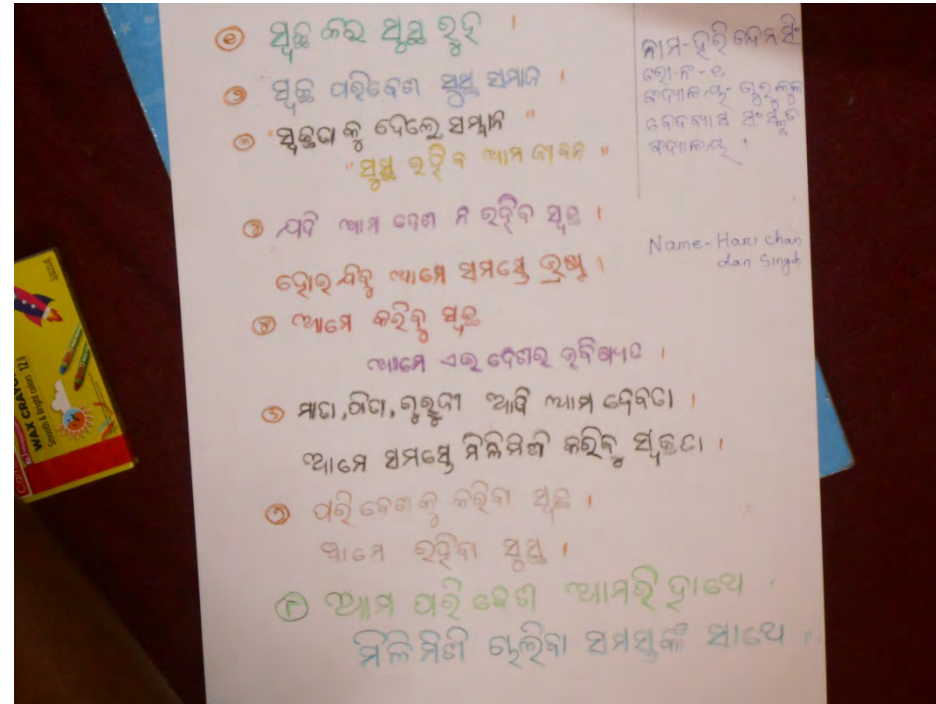 ୧ ସ୍ବଚ୍ଛ କର ସୁସ୍ଥ ରୁହ ।
୨ ସ୍ବଚ୍ଛ ପରିବେଶ ସୁସ୍ଥ ସମାଜ ।
୩ "ସ୍ବଚ୍ଛତା କୁ ଦେଲେ ସମ୍ମାନ "
"ସୁସ୍ଥ ରହିବ ଆମ ଜୀବନ "
ଯଦି ଆମ ଦେଶ ନ ରହିବ ସ୍ବଚ୍ଛ ।
ହୋଇଯିବୁ ଆମେ ସମସ୍ତେ
୫ ଆମେ କରିବୁ ସ୍ବଚ୍ଛ
ଆମେ ଏଇ ଦେଶର ଭବିଷ୍ୟତ ।
ମାତା, ପିତା, ଗୁରୁଜୀ ଆଦି ଆମ ଦେବତା ।
ଆମେ ସମସ୍ତେ ମିଳିମିଶି କରିବୁ ସ୍ବଚ୍ଛତା ।
୭ ପରିବେଶକୁ କରିବା ସ୍ବଚ୍ଛ ।
ଆମେ ରହିବା ସୁସ୍ଥ ।
୮ ଆମ ପରିବେଶ ଆମରି ହାଥେ ।
ମିଳିମିଶି ଚାଲିବା ସମସ୍ତଙ୍କ ସାଥେ ॥
ନାମ-ହରି ଚେନ ସିଂ
ରୋ.ନଂ-୧
ବିଦ୍ୟାଳୟ- ଗୁରୁକୁଳ
ବେଦବ୍ୟାସ ସଂସ୍କୃତ
ବିଦ୍ୟାଳୟ ।
Name-Hari chan
dan Singh
WAX CRAYONS
Smooth & Bright Colors 12